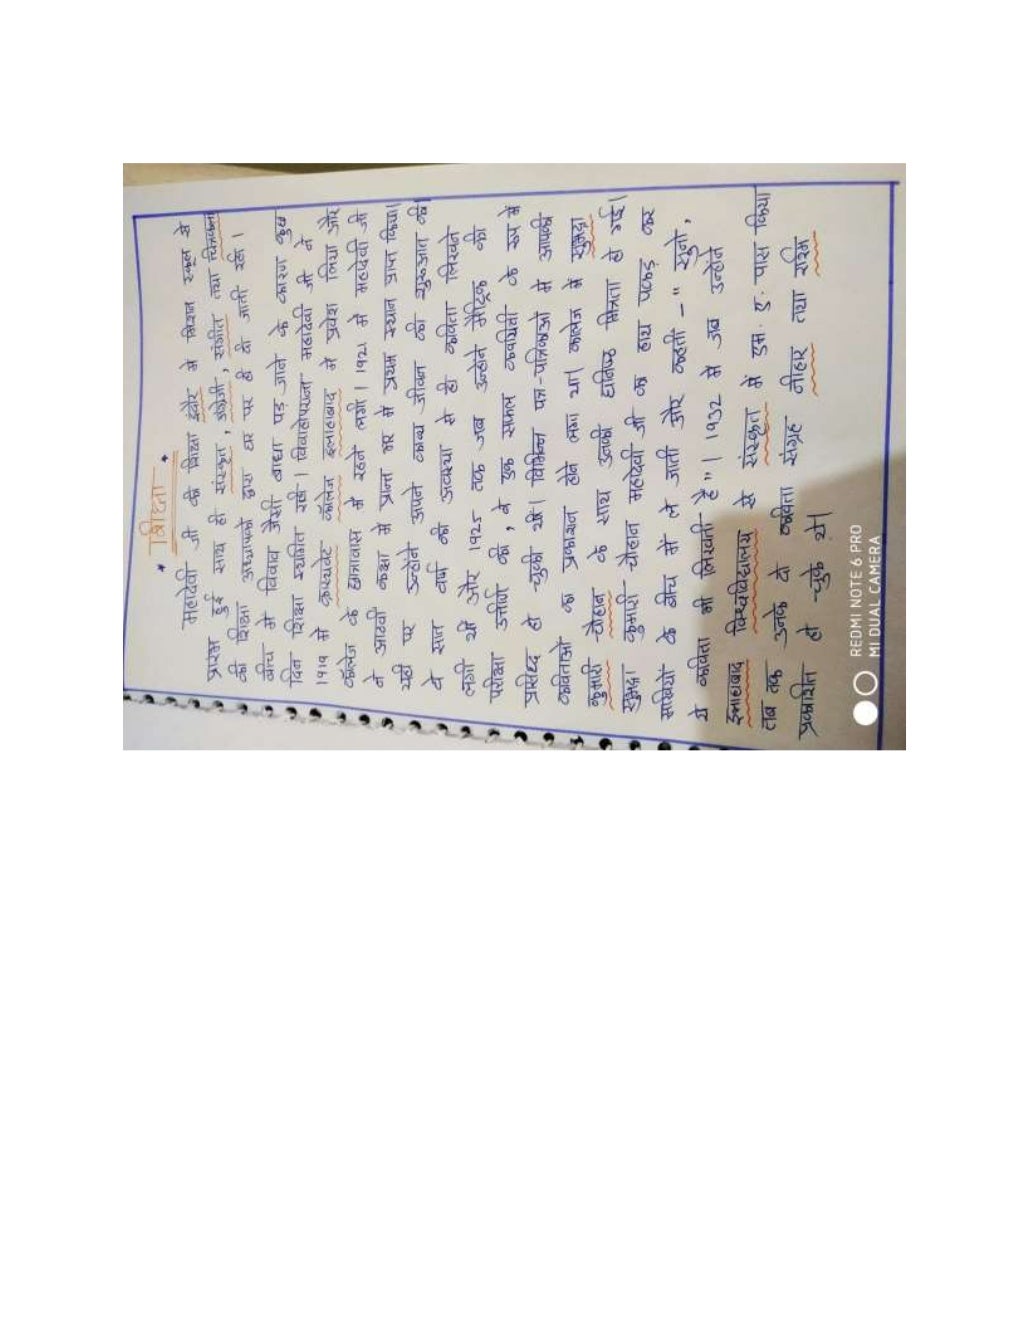 * शिक्षा *
महादेवी जी की शिक्षा इंदौर में मिशन स्कूल से
प्रारंभ हुई साथ ही संस्कृत, अंग्रेजी, संगीत तथा चित्रकला
की शिक्षा अध्यापकों द्वारा घर पर ही दी जाती रही।
बीच में विवाह जैसी बाधा पड़ जाने के कारण कुछ
दिन शिक्षा स्थगित रही। विवाहोपरान्त महादेवी जी ने
1919 में क्रास्थवेट कॉलेज इलाहाबाद में प्रवेश लिया और
कॉलेज के छात्रावास में रहने लगी। 1921 में महादेवी जी
ने आठवीं कक्षा में प्रान्त भर में प्रथम स्थान प्राप्त किया।
यहीं पर उन्होंने अपने काव्य जीवन की शुरुआत की।
वे सात वर्ष की अवस्था से ही कविता लिखने
लगी थी और 1925 तक जब उन्होंने मैट्रिक की
परीक्षा उत्तीर्ण की, वे एक सफल कवयित्री के रूप में
प्रसिद्ध हो चुकी थी। विभिन्न पत्र-पत्रिकाओं में आपकी
कविताओं का प्रकाशन होने लगा था। कालेज में सुभद्रा
कुमारी चौहान के साथ उनकी घनिष्ठ मित्रता हो गई।
सुभद्रा कुमारी चौहान महादेवी जी का हाथ पकड़ कर
सखियों के बीच में ले जाती और कहती - " सुनो,
ये कविता भी लिखती हैं"। 1932 में जब उन्होंने
इलाहाबाद विश्वविद्यालय से संस्कृत में एम. ए. पास किया
तब तक उनके दो कविता संग्रह नीहार तथा रश्मि
प्रकाशित हो चुके थे।
REDMI NOTE 6 PRO
MI DUAL CAMERA